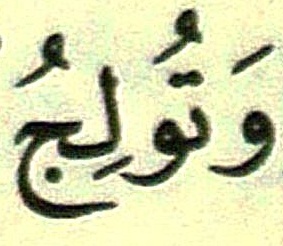 وَتُولِجُ